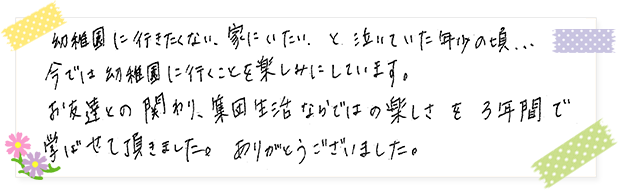 幼稚園に行きたくない、家にいたい、と泣いていた年少の頃...
今では幼稚園に行くことを楽しみにしています。
お友達との関わり、集団生活ならではの楽しさを3年間で
学ばせて頂きました。ありがとうございました。